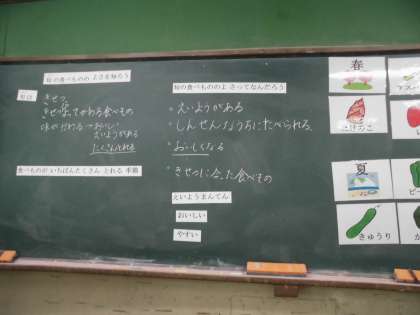 旬の食べもののよさを知ろう
旬は
きせつ
きせつ
でかわる食べもの
味がかわる→おいしい
えいようがある
たくさんとれる
食べものが いちばんたくさん とれる 季節
旬の食べもののよ さってなんだろう
・えいようがある
・しんせんなうちにたべられる。
・おいしくなる
・きせつに合った食べもの
えいようまんてん
おいしい
やすい
春
たけのこ
夏
きゅうり
ピー